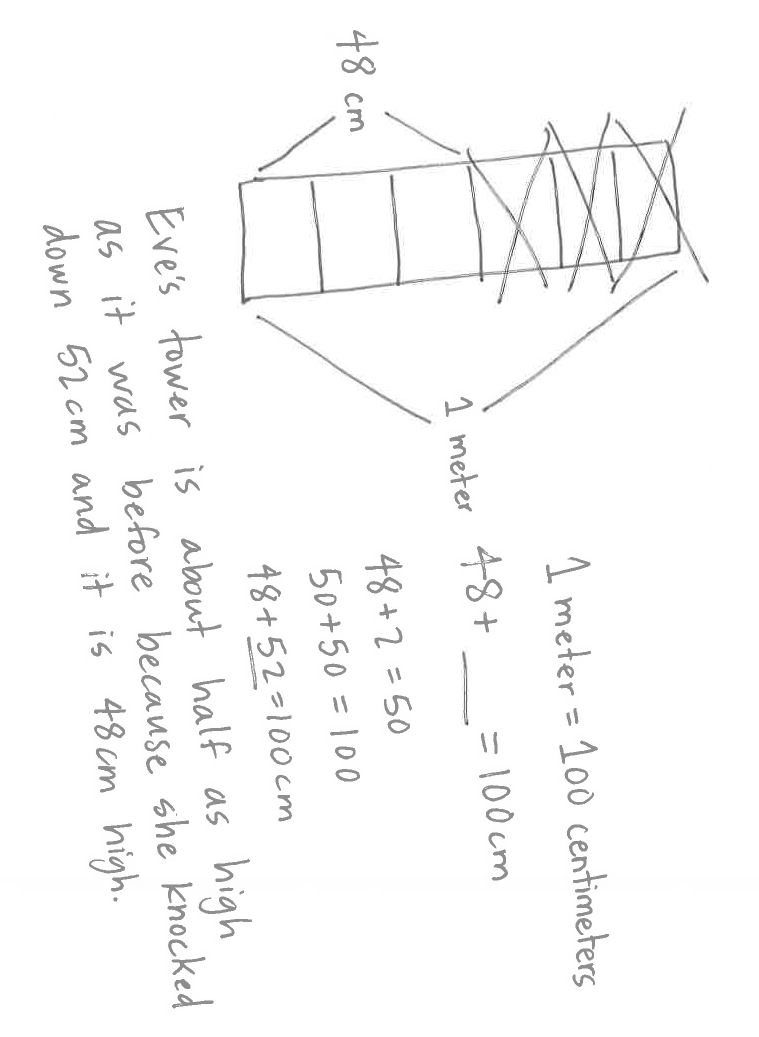 48 cm
1 meter
1 meter = 100 centimeters
48 + __ = 100 cm
48 + 2 = 50
50 + 50 = 100
48 + 52 = 100 cm
Eve's tower is about half as high
as it was before because she knocked
down 52 cm and it is 48 cm high.